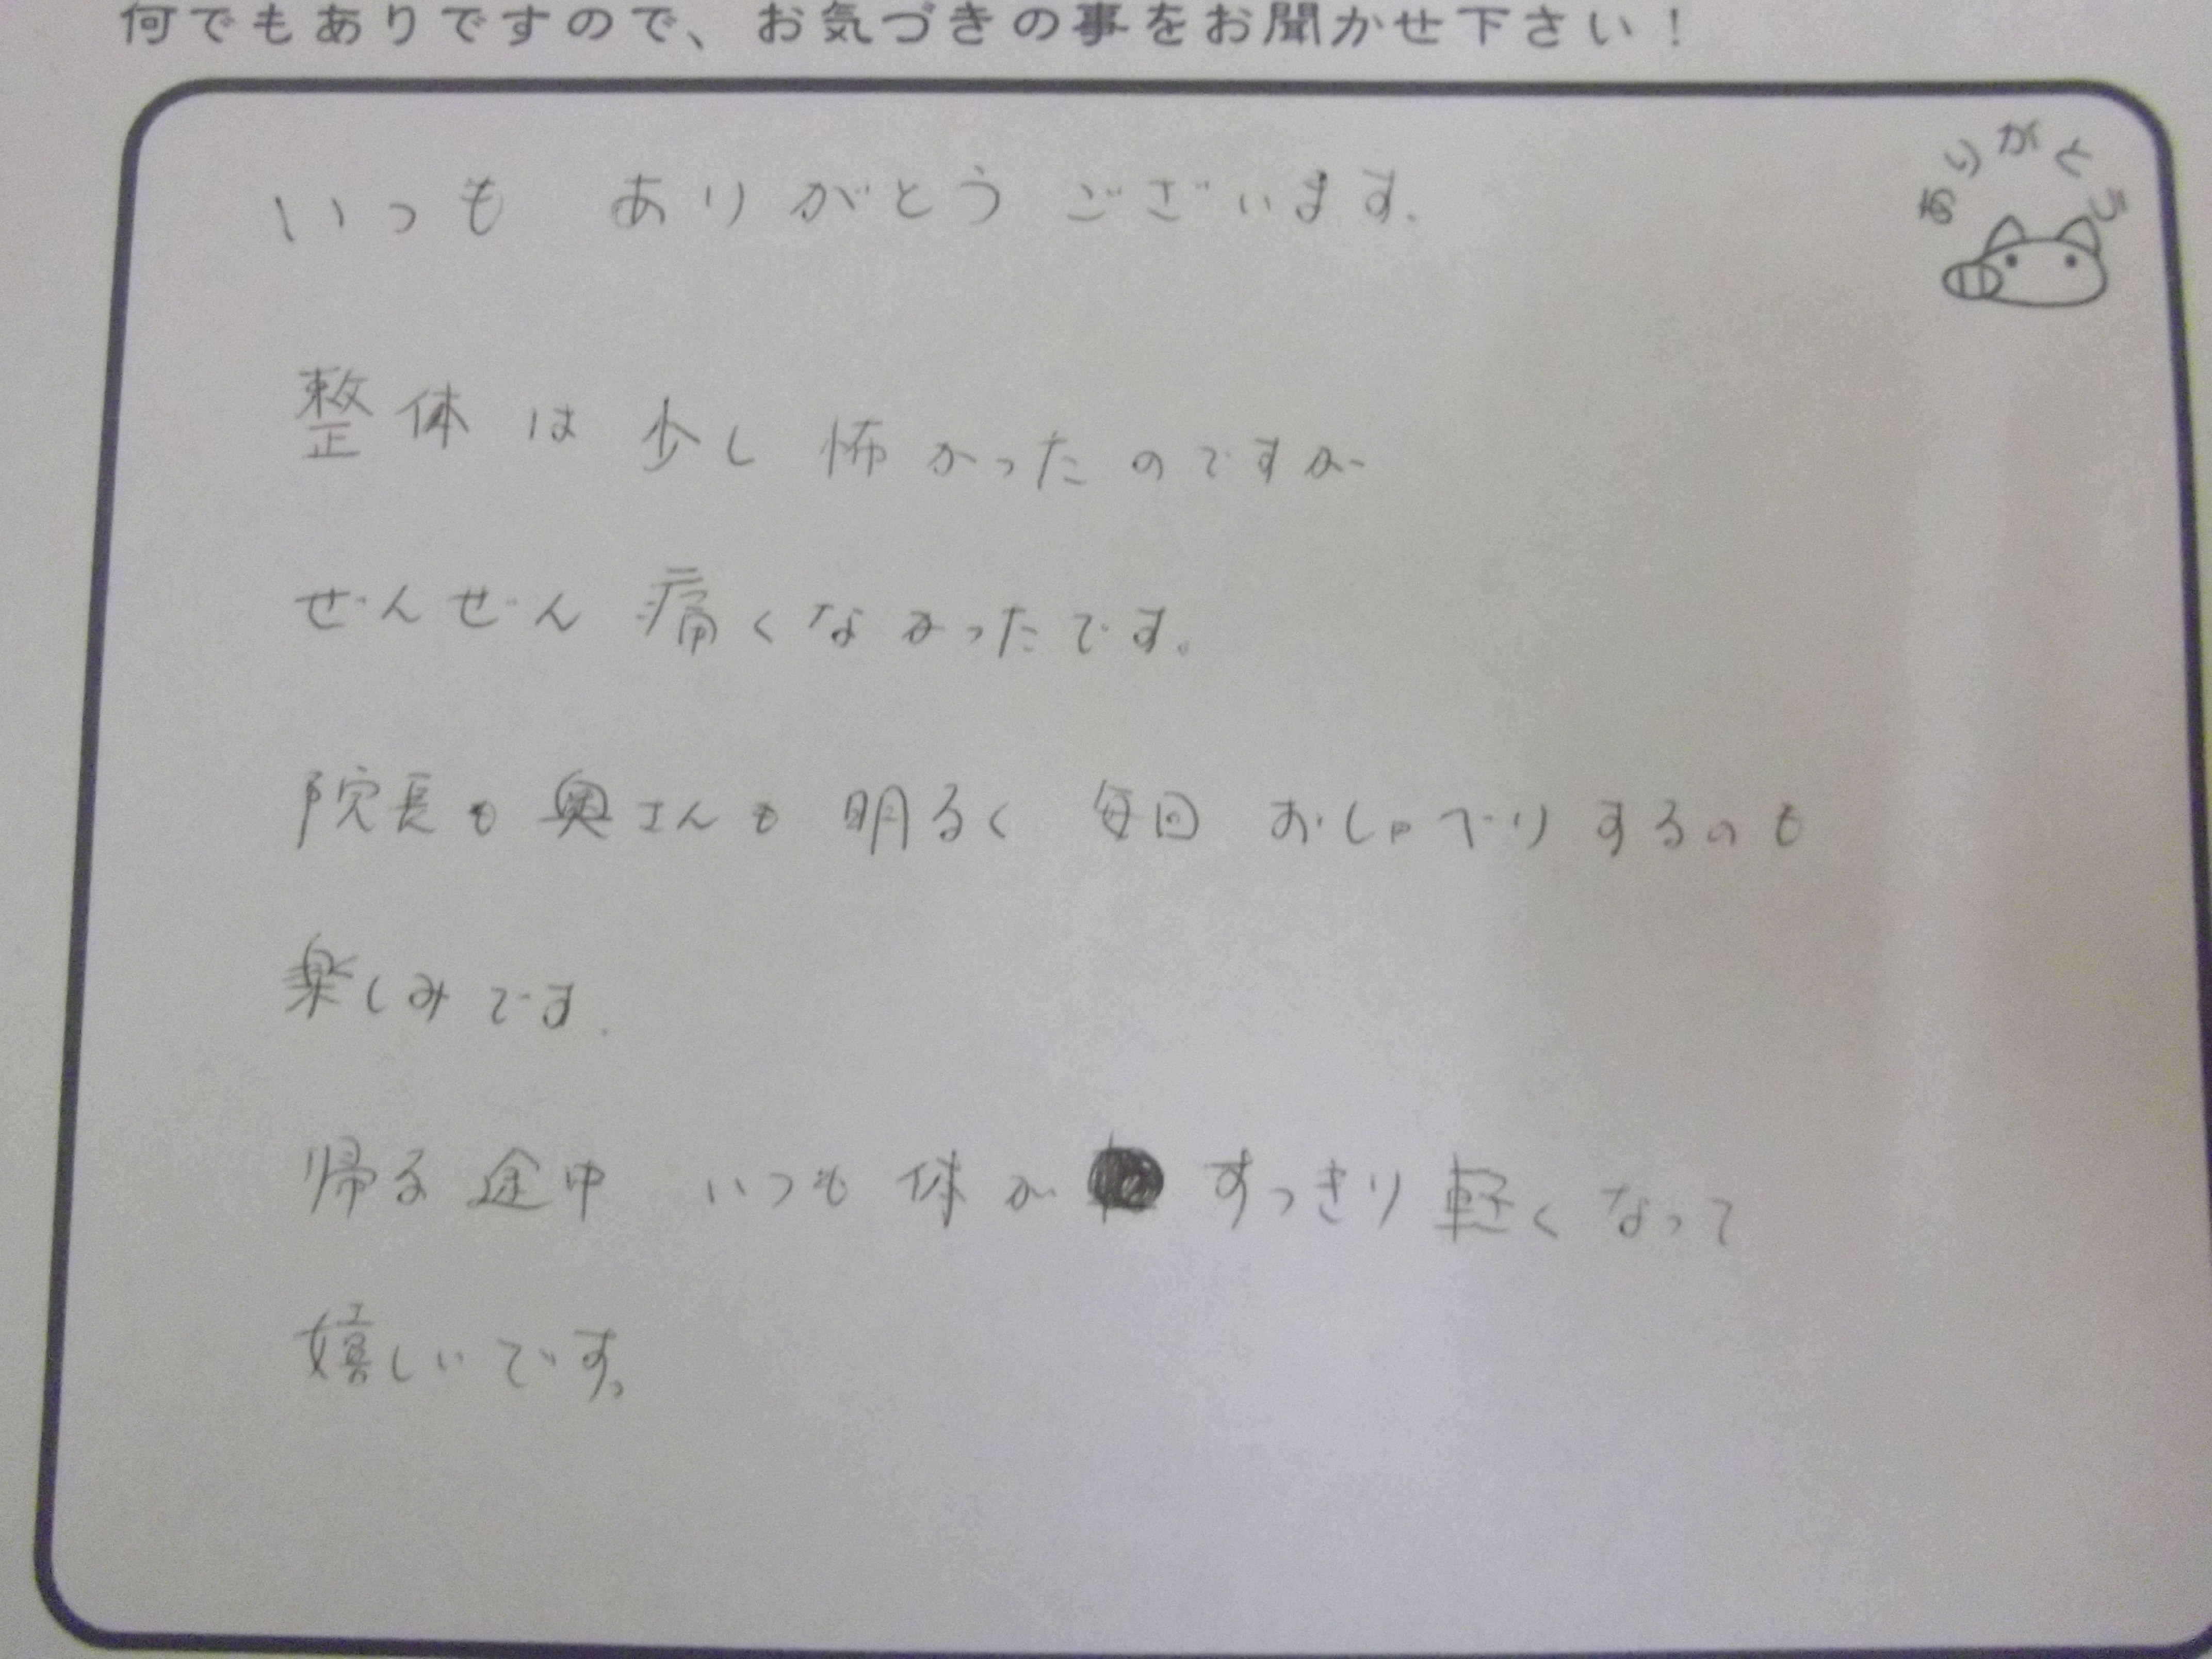 何でもありですので、お気づきの事をお聞かせ下さい！
ありがとう
いつも ありがとう ございます.
整体は 少し 怖かったのですが
ぜんぜん 痛くなかったです。
院長も 奥さんも 明るく 毎回 おしゃべりするのも
楽しみです.
帰る途中 いつも 体が すっきり 軽くなって
嬉しいです。